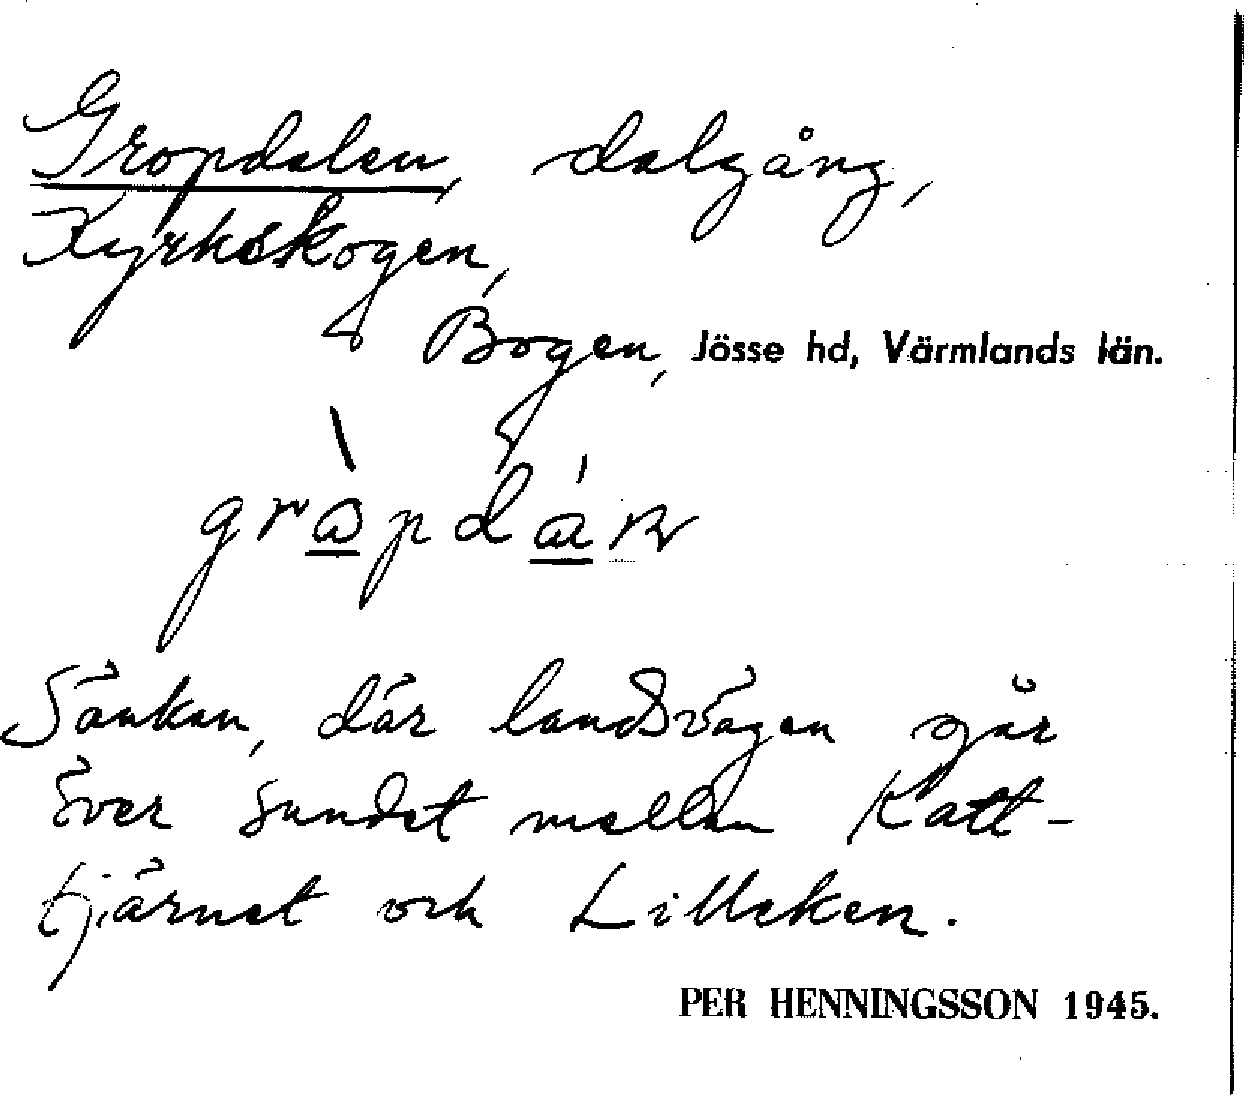 Gropdalen, dalgång,
Kyrkskogen,
Bogen, Jösse hd, Värmlands län.
Sänkan, där landsvägen går
över sundet mellan Katt-
tjärnet och Lilleken.
PER HENNINGSSON 1945.